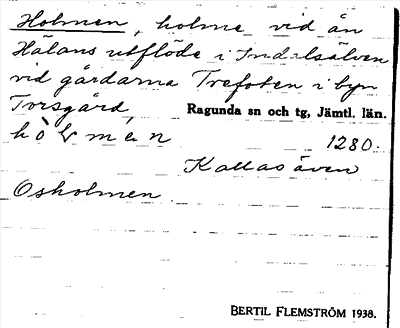 Holmen, holme vid ån
Hälans utflöde i Indalsälven
vid gårdarna Trefoten i byn
Torsgård, Ragunda sn och tg, Jämtl. län.
1280.
Kallas även
Osholmen.
BERTIL FLEMSTRÖM 1938.